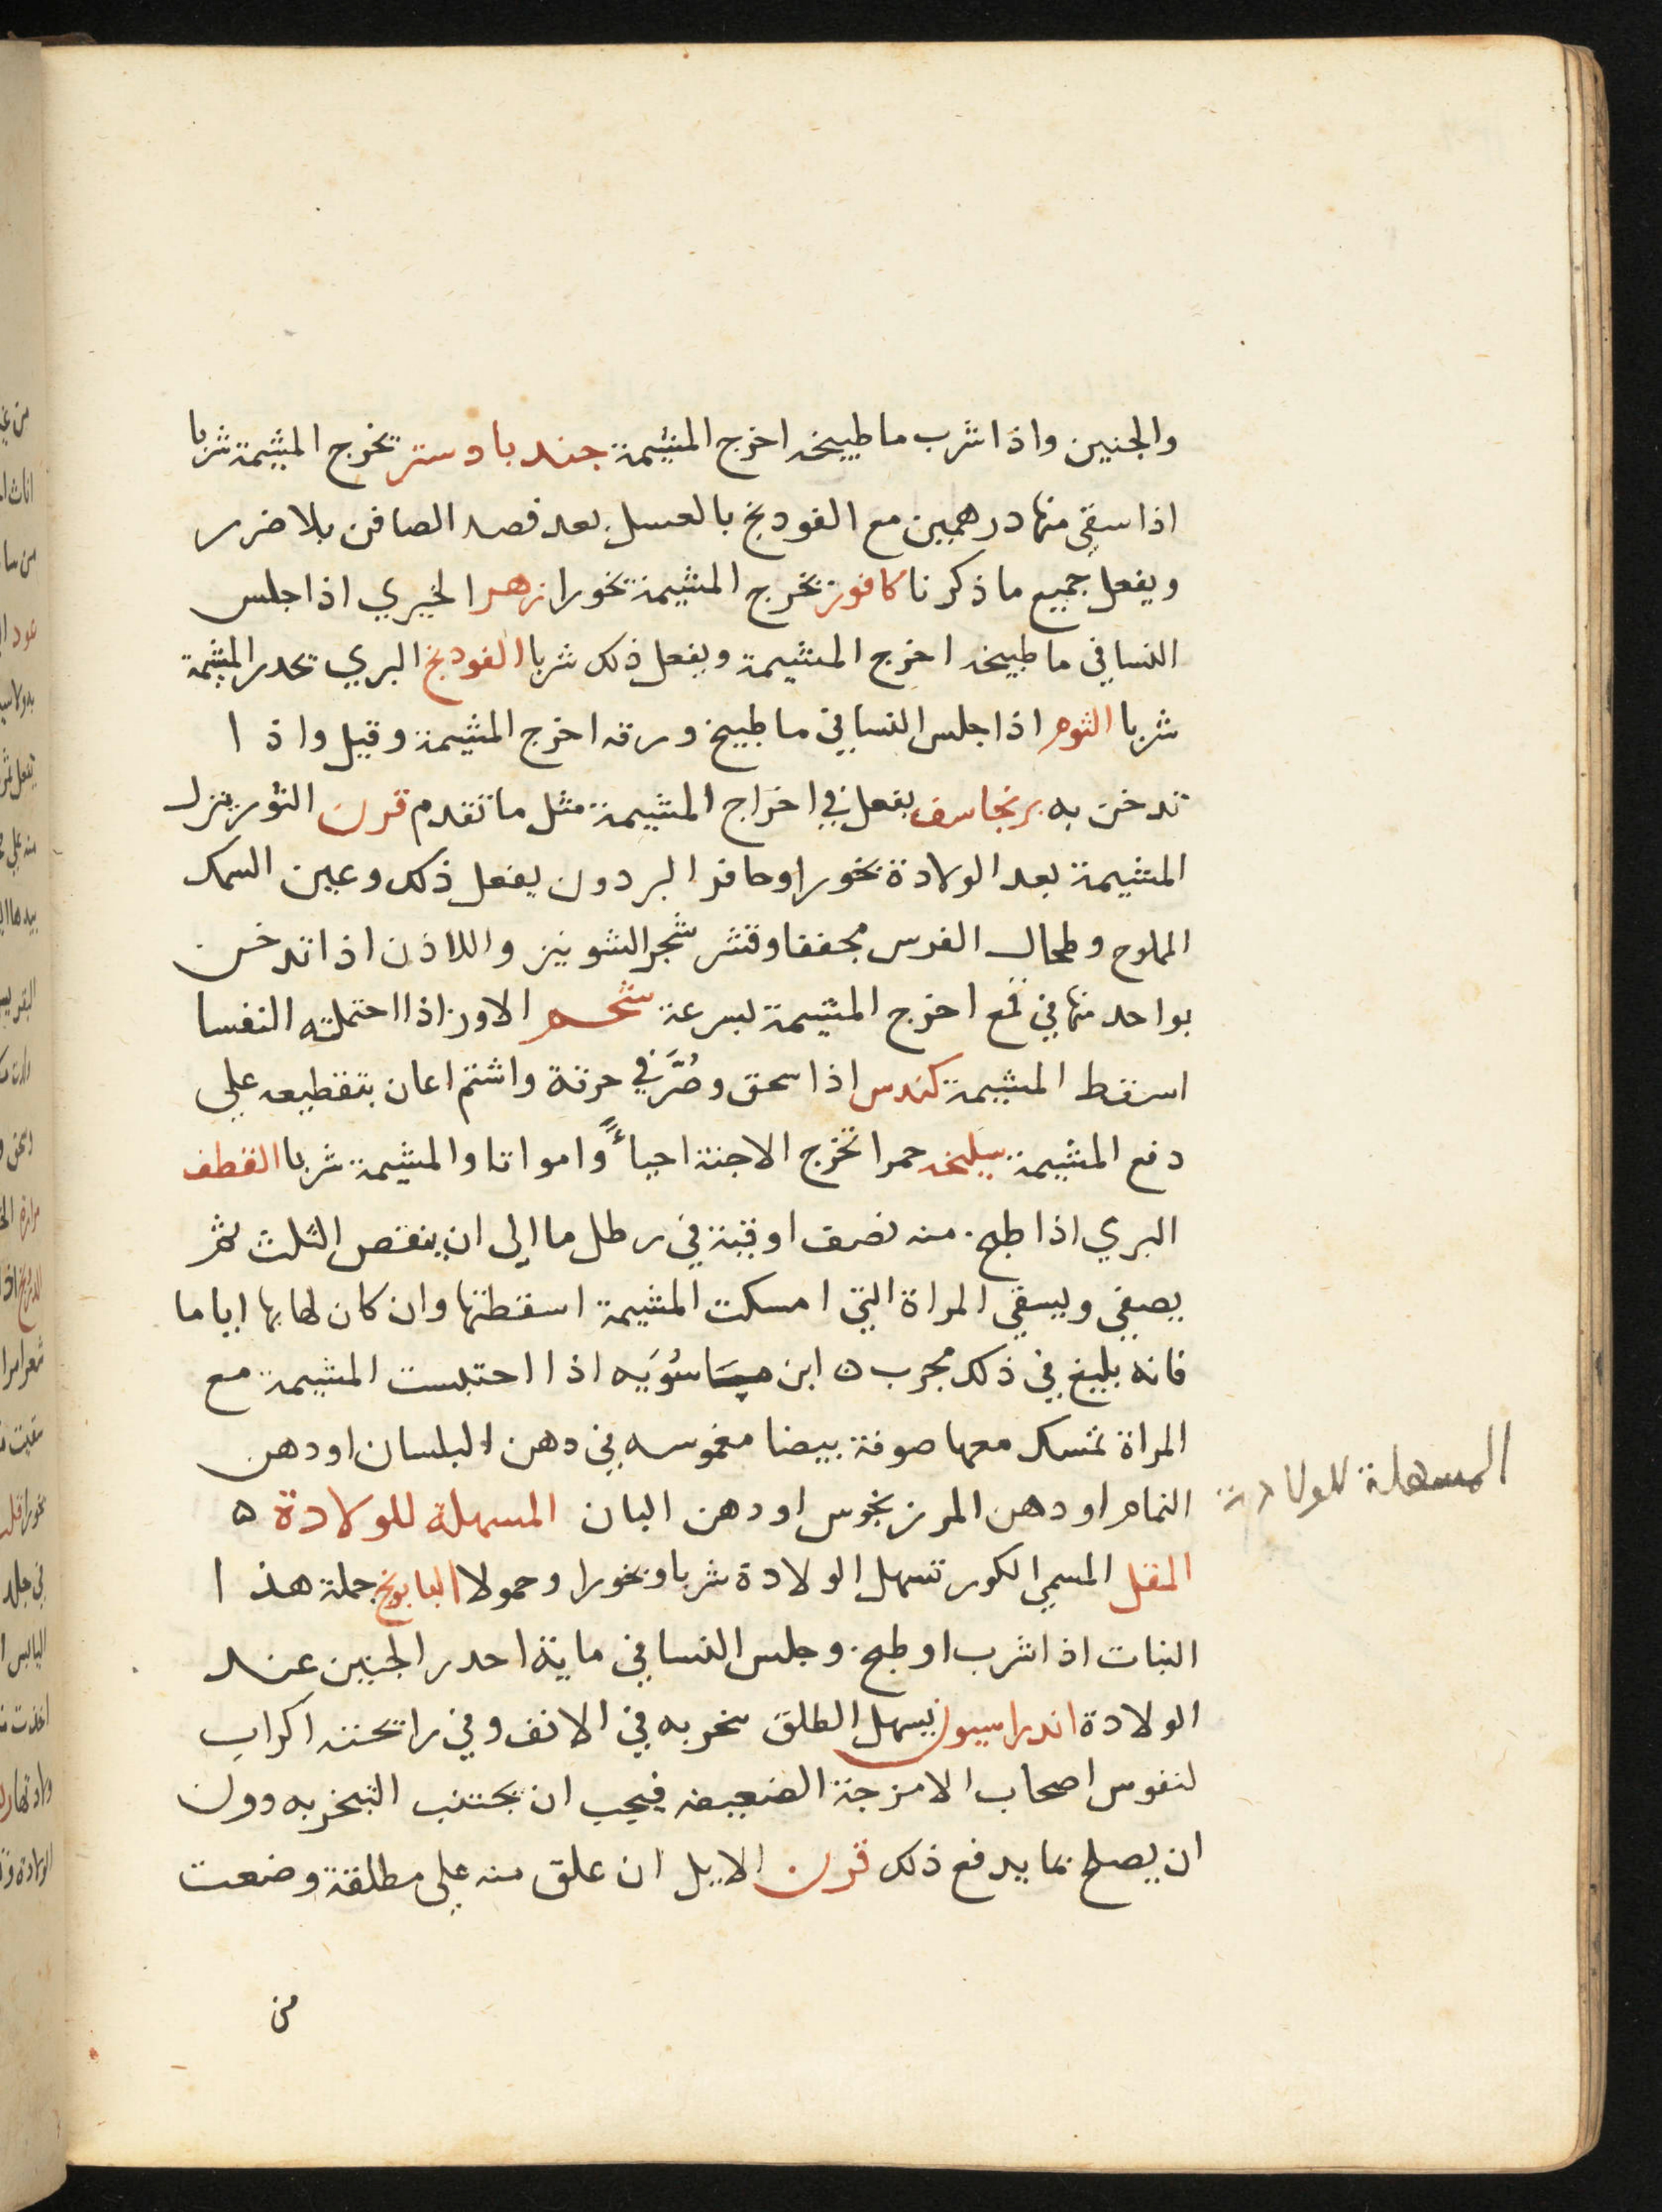 والجنين واذا شرب ما طبيخه اخرج المشيمة جندبادستر تخرج المشيمة شربا
اذا سقي منها درهمين مع الفودنج بالعسل بعد فصد الصافن بلا ضرر
ويفعل جميع ما ذكرنا كافور تخرج المشيمة بخورا زهر الخيري اذا جلس
النسا في ما طبيخه اخرج المشيمة ويفعل ذلك شربا الفودنج البري تحدر المشيمة
شربا الثوم اذا جلس النسا في ما طبيخ ورقه اخرج المشيمة وقيل واذا
تدخن به برنجاسف يفعل في اخراج المشيمة مثل ما تقدم قرن الثور ينزل
المشيمة بعد الولادة بخورا وحافر البردون يفعل ذلك وعين السمك
المملوح وطحال الفرس مجففا وقشر شجر الشونيز واللاذن اذا تدخن
بواحد منها في قمع اخرج المشيمة بسرعة شحم الاوز اذا احتملته النفسا
اسقط المشيمة كندس اذا سحق وصُرَّ في خرقة واشتم اعان بتقطيعه علي
دفع المشيمة سليخه حمرا تخرج الاجنة احياءً وامواتا والمشيمة شربا القطف
البري اذا طبخ منه نصف اوقية في رطل ما الي ان ينقص الثلث ثم
يصفي ويسقي المراة التي امسكت المشيمة اسقطتها وان كان لها بها اياما
فانه بليغ في ذلك مجرب ه ابن ماسُوَيه اذا احتبست المشيمة مع
المراة تمسك معها صوفة بيضا مغموسه في دهن البلسان او دهن
النمام او دهن المرزنجوس او دهن البان المسهلة للولادة ه
المسهلة للولادة
المقل المسمي الكور تسهل الولادة شربا وبخورا وحمولا البابونج جملة هذا
النبات اذا شرب او طبخ وجلس النسا في مايه احدر الجنين عند
الولادة اندراسيون يسهل الطلق بخر به في الانف وفي رائحته اكراب
لنفوس اصحاب الامزجة الضعيفه فيجب ان يجتنب التبخر به دون
ان يصلح بما يدفع ذلك قرن الايل ان علق منه علي مطلقة وضعت
من